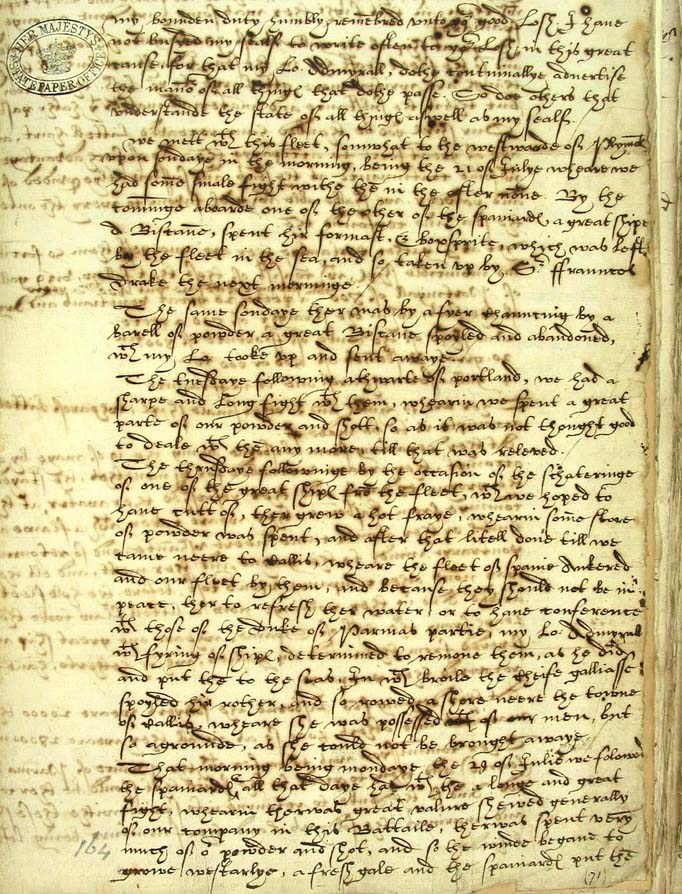 HER MAJESTY'S STATE PAPER OFFICE
my bounden duty humbly remembred unto yor good Losh I have
not busyed my sealf to write often to yor Losh in this great
cause for that my Lo: Admyrall, dothe contynuallye advertise
the manor of all things that dothe passe. So doe others that
understande the state of all things aswell as my sealf.
we mett wth this fleet, somwhat to the westwarde of Plymoth
upon sondaye in the morning, being the 21 of Julye wheare we
had some smale fight withe them in the after none. By the
cominge aboarde one of the other of the spaniards, a great shipe
a Biscane, spent hir formast, & boxsprite, which was left
by the fleet in the sea, and so taken up by Sr ffrauncos
Drake the next morninge.
The same sondaye ther was by a fyer chauncing by a
barell of powder, a great Biscane spoyled and abandoned,
wch my Lo: tooke up and sent awaye.
The tuesdaye following, athwarte of portland, we had a
sharpe and long fight wth them, whearin we spent a great
parte of our powder and shott, so as it was not thought good
to deale wth them any more, till that was releved.
The thursdaye followinge by the occasion of the schateringe
of one of the great ships from the fleet, wch we hoped to
have cutt of, ther grew a hot fraye, whearin some store
of powder was spent, and after that litell done till we
came neere to Callis, wheare the fleet of spaine Ankered
and our fleet by them, and because they should not be in
peace, ther to refresh ther water, or to have conference
wth those of the Duke of Parmas partie, my Lo: Admyrall
wth fyring of ships, determined to remove them, as he did
and put them to the seas, In wch broile the cheife galliasse
spoyled hir rother, and so rowed a shore neere the towne
of Callis, wheare she was possessed of our men, but
so a grounde, as she could not be brought awaye.
That morning being mondaye, the 29 of Julie we folowed
the spaniards, all that daye had wth them a longe and great
fight, whearin ther was great valure shewed generally
of our company in this Battaile, ther was spent very
much of or powder and shot, and so the winde began to
growe westerlye, a fresh gale and the spaniards put them
164
(71)